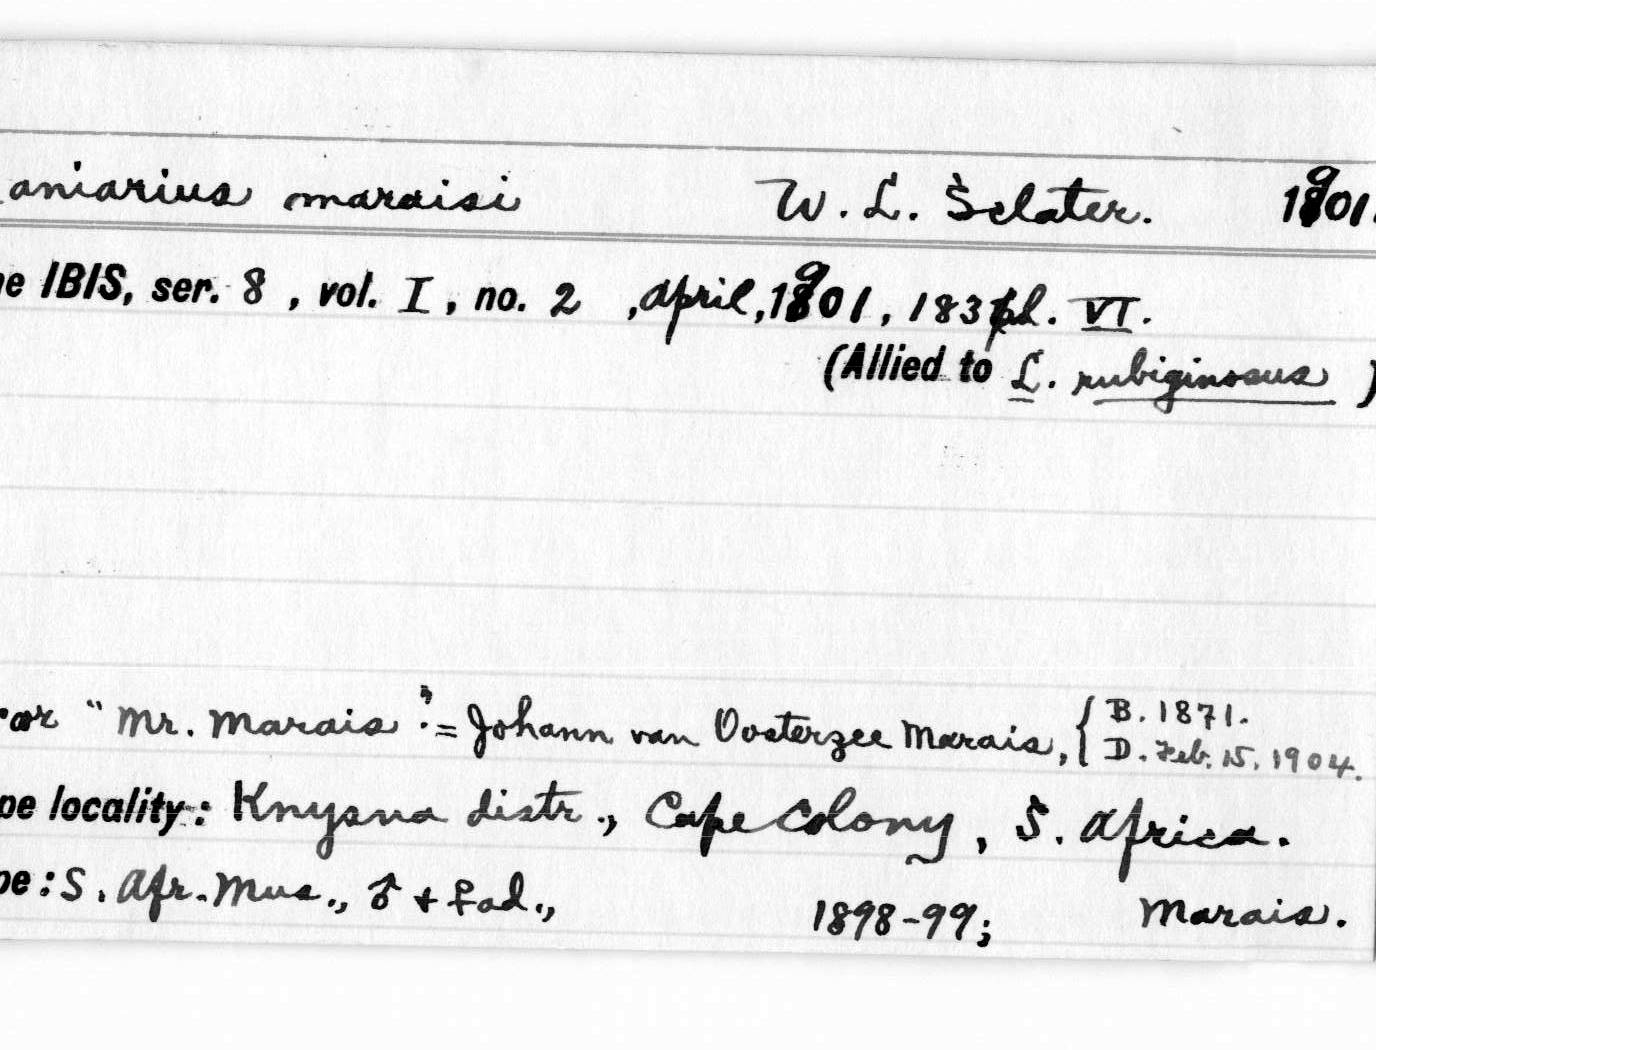 aniarius maraisi W. L. Sclater. 1901.
e IBIS, ser. 8, vol. I, no. 2, April, 1901, 183 pl. VI.
(Allied to L. rubiginosus)
or "Mr. Marais". = Johann van Oosterzee Marais, { B. 1871.
D. Feb. 15, 1904.
pe locality: Knysna distr., Cape Colony, S. Africa.
pe: S. Afr. Mus., ♂ + ♀ ad., 1898-99; Marais.